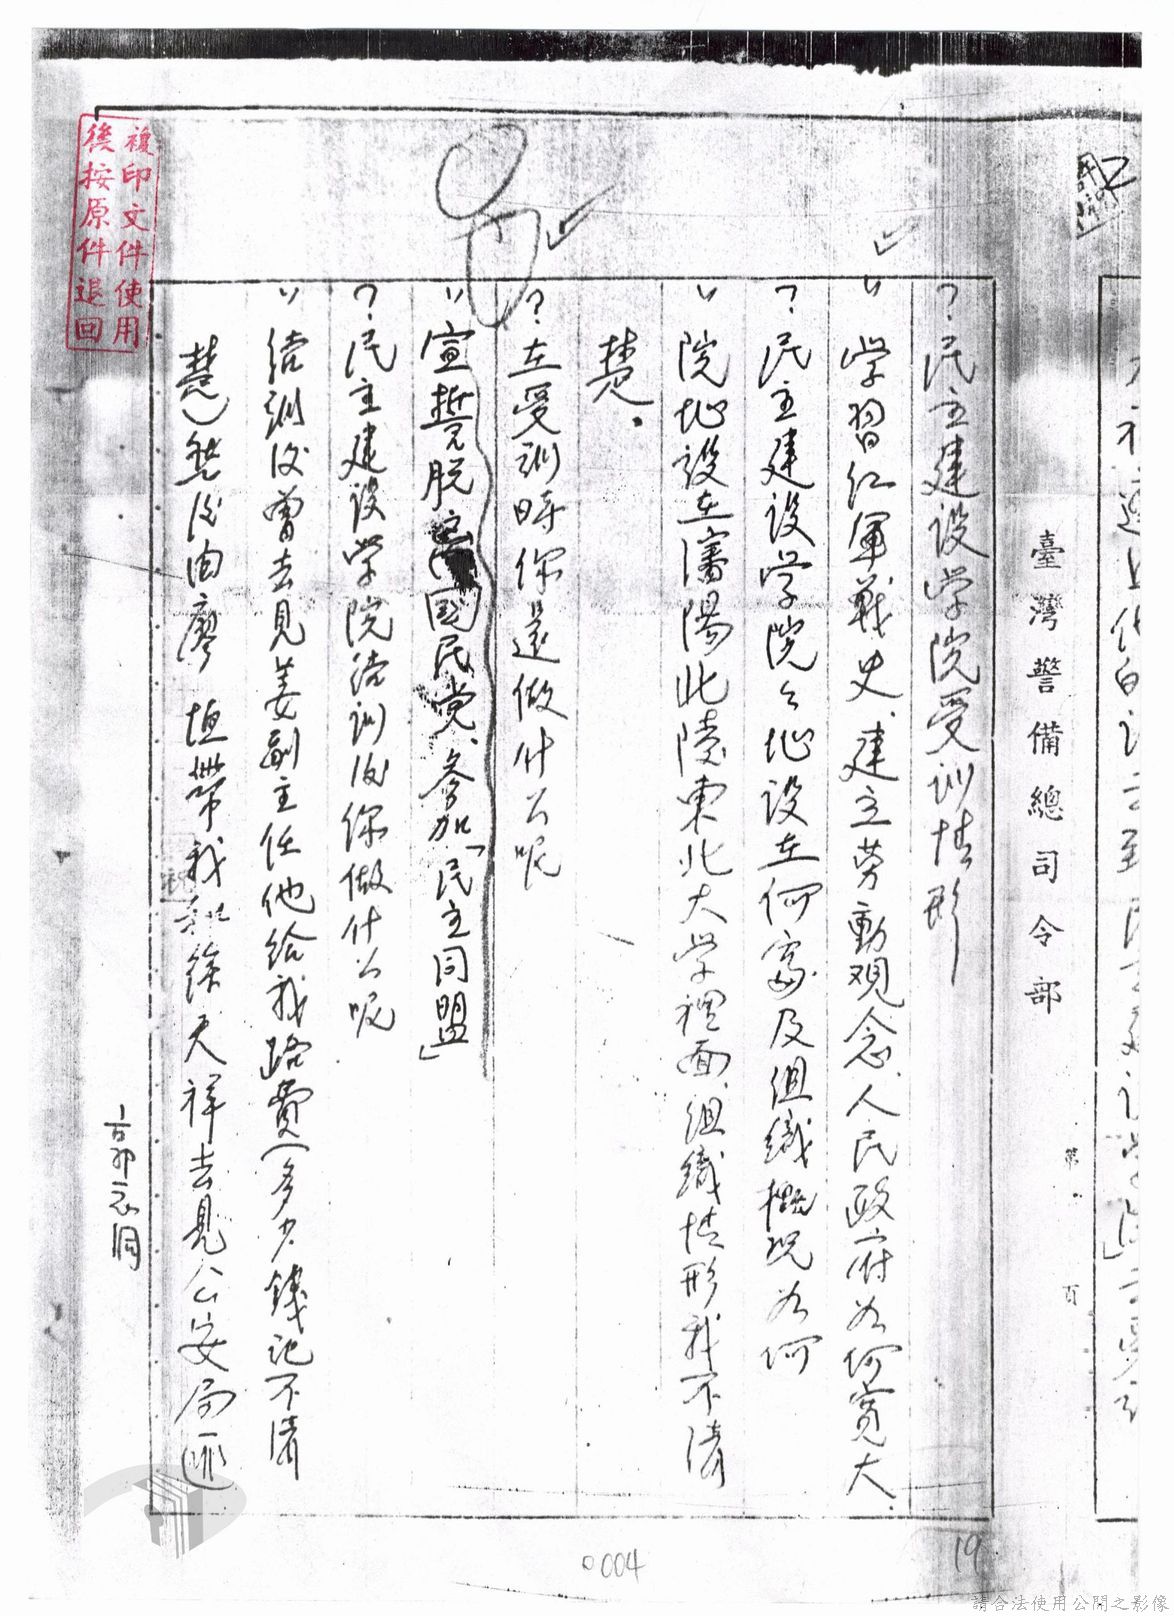 臺灣警備總司令部
第 頁
? 民主建设学院受训情形
学習红軍戰史、建立劳動观念、人民政府为何寬大、
? 民主建设学院々址设在何處及组織概况为何
院址設在瀋陽北陵東北大学裡面、组織情形我不清
楚。
? 在受训時你還做什么呢
宣誓脱离國民党、参加「民主同盟」
? 民主建设学院结训后你做什么呢
结训后曾去見姜副主任他给我路費(多少錢记不清
楚)然后由廖 恒帶我和徐天祥去見公安局
複印文件使用
後按原件退回
0004
19
請合法使用公開之影像